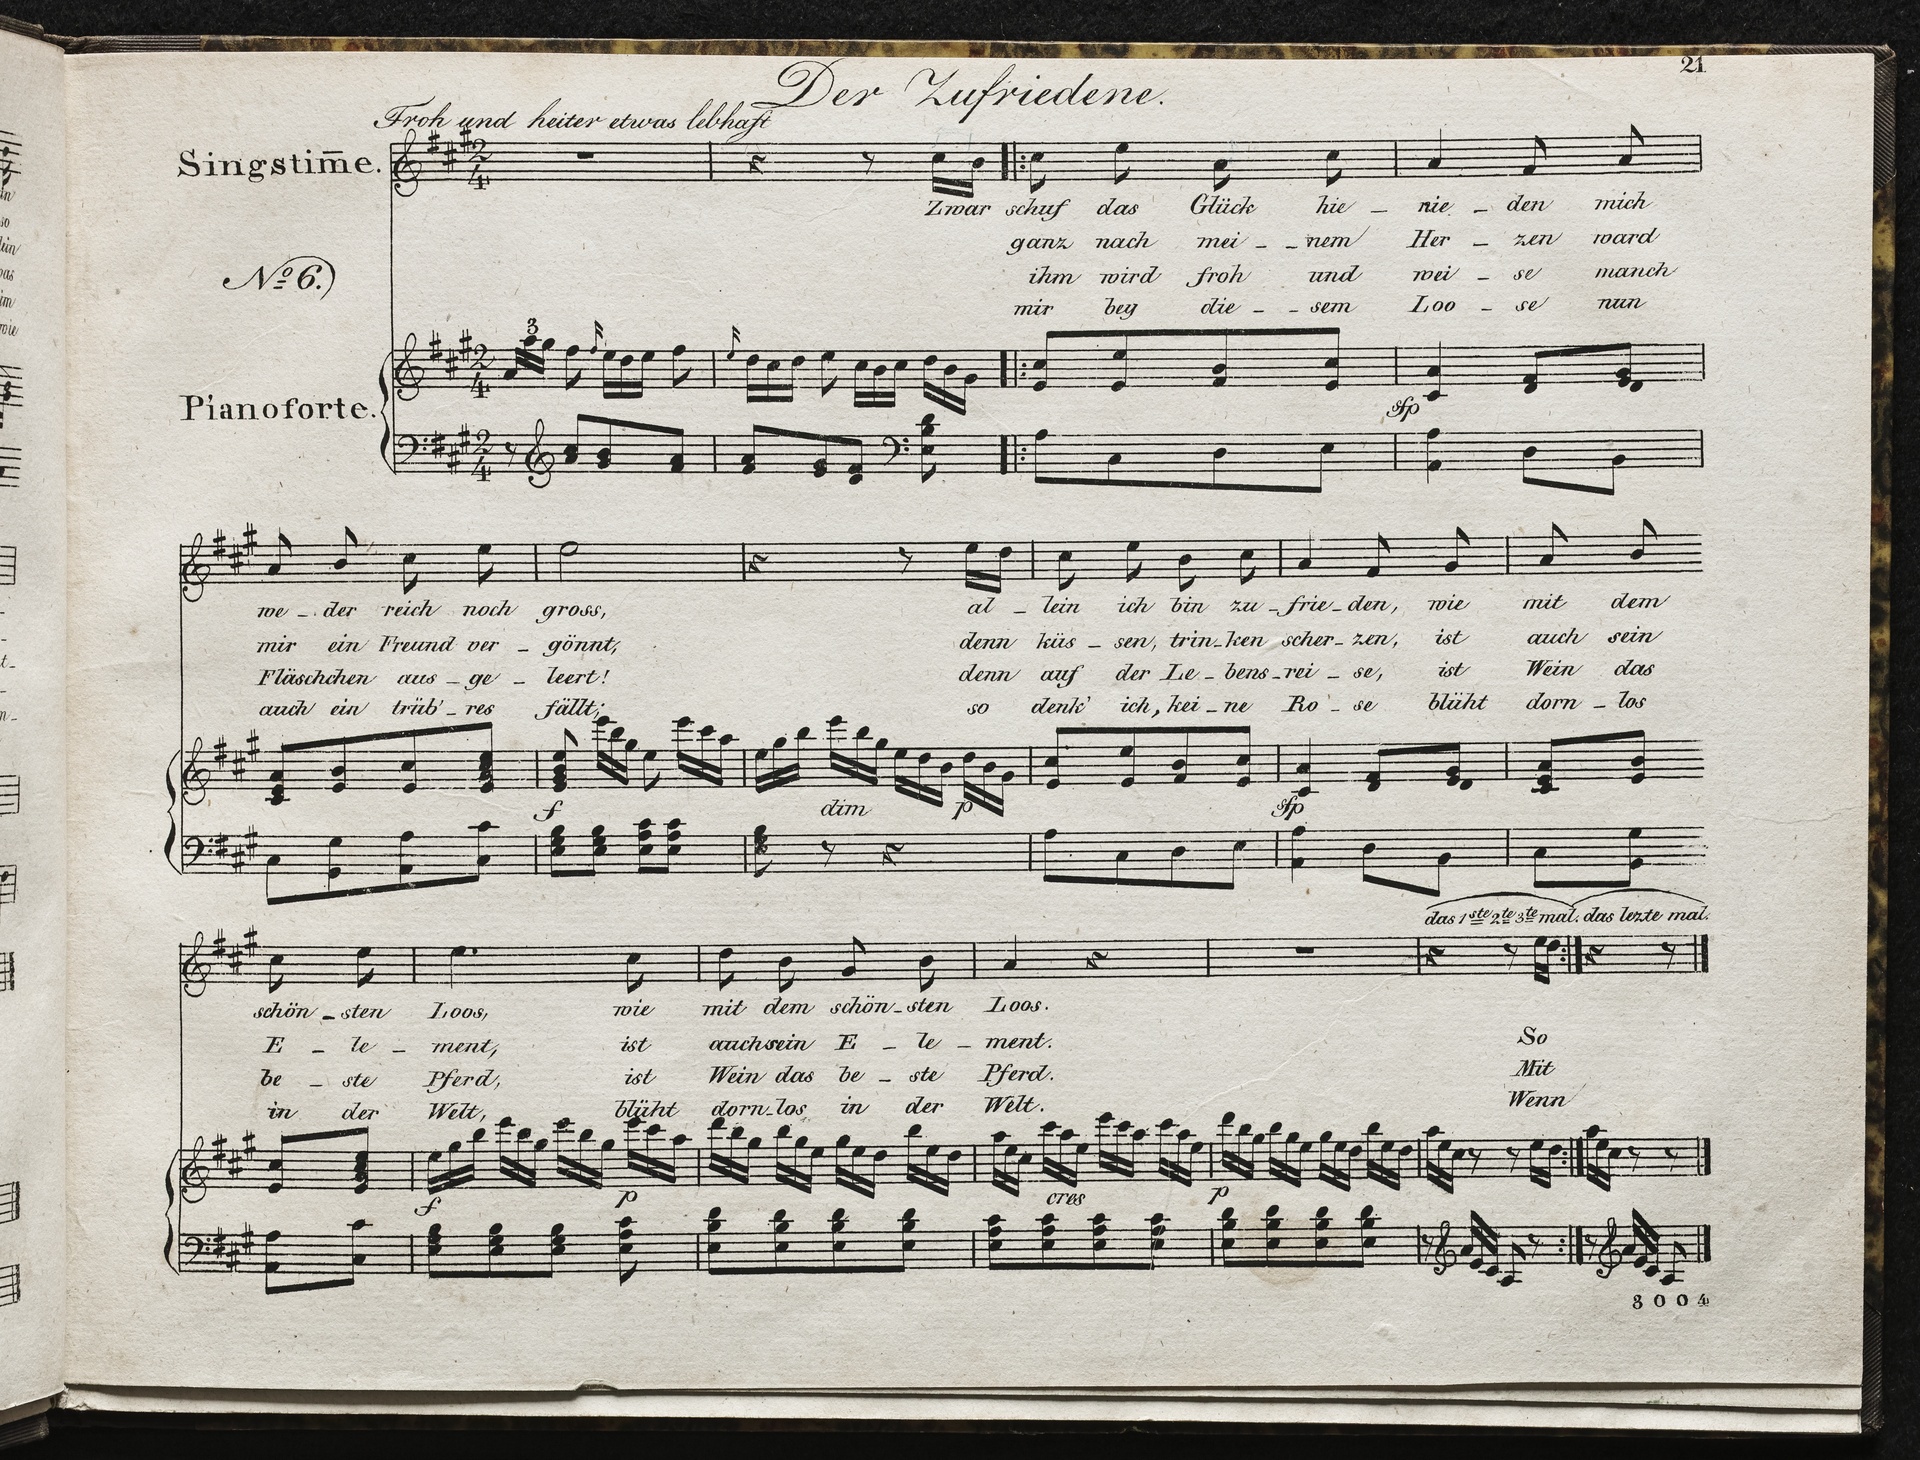 21
Der Zufriedene.
Froh und heiter etwas lebhaft
Singstim̄e.
Zwar schuf das Glück hie - nie - den mich
ganz nach mei - nem Her - zen ward
ihm wird froh und wei - se manch
mir bey die - sem Loo - se nun
No 6.)
3
Pianoforte.
sfp
we - der reich noch gross, al - lein ich bin zu - frie - den, wie mit dem
mir ein Freund ver - gönnt, denn küs - sen, trin - ken scher - zen, ist auch sein
Fläschchen aus - ge - leert! denn auf der Le - bens - rei - se, ist Wein das
auch ein trüb' - res fällt; so denk' ich, kei - ne Ro - se blüht dorn - los
f dim p sfp
das 1ste 2te 3te mal. das lezte mal.
schön - sten Loos, wie mit dem schön - sten Loos.
E - le - ment, ist auch sein E - le - ment. So
be - ste Pferd, ist Wein das be - ste Pferd. Mit
in der Welt, blüht dorn - los in der Welt. Wenn
f p cres p
3004